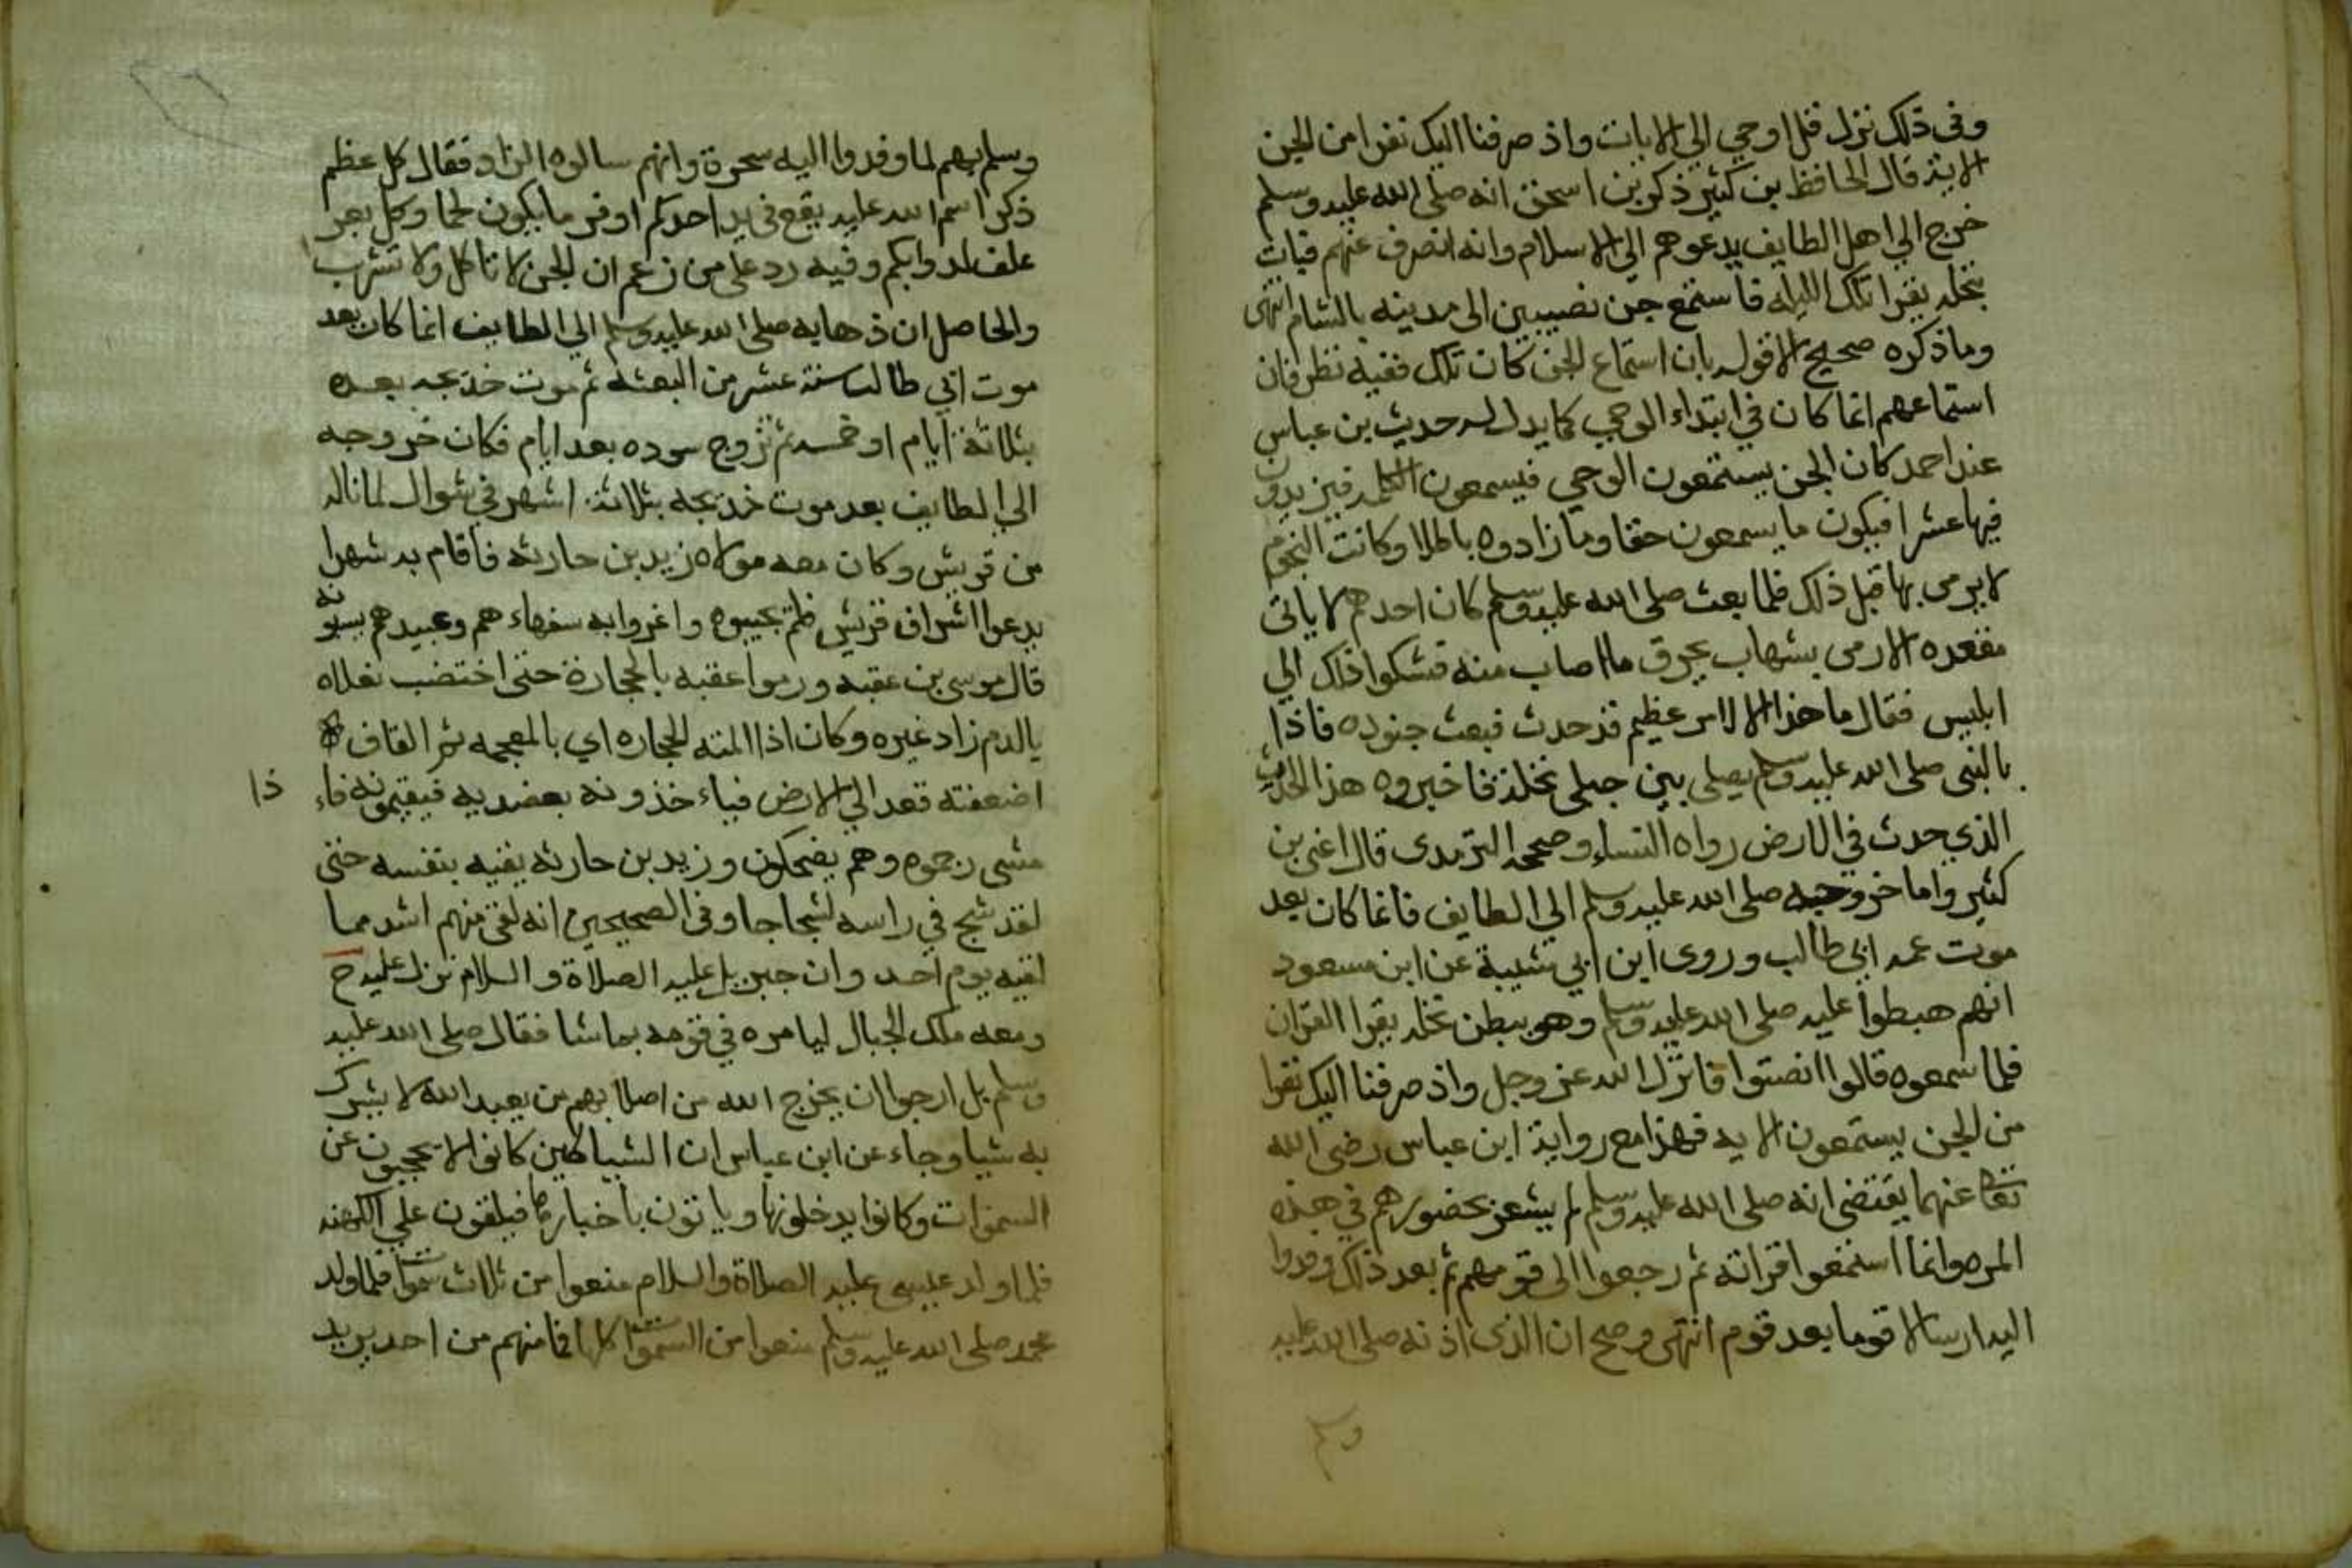 وفي ذلك نزل قل اوحي الي الايات واذ صرفنا اليك نفرا من الجن
الاية قال الحافظ بن كثير ذكر بن اسحق انه صلى الله عليه وسلم
خرج الي اهل الطايف يدعوهم الي الاسلام وانه انصرف عنهم فبات
بنخله يقرا تلك الليله فاستمع جن نصيبين الى مدينه بالشام انتهى
وما ذكره صحيح الا قوله بان استماع الجن كان تلك ففيه نظر فان
استماعهم انما كان في ابتداء الوحي كما يدل له حديث بن عباس
عند احمد كان الجن يستمعون الوحي فيسمعون الكلمه فيزيدون
فيها عشرا فيكون ما يسمعون حقا وما زادوه باطلا وكانت النجوم
لا يرمى بها قبل ذلك فلما بعث صلى الله عليه وسلم كان احدهم لا ياتي
مقعده الا رمى بشهاب يحرق ما اصاب منه فشكوا ذلك الي
ابليس فقال ما هذا الا لامر عظيم قد حدث فبعث جنوده فاذا
بالنبي صلى الله عليه وسلم يصلي بين جبلي نخلة فاخبروه هذا الحدث
الذي حدث في الارض رواه النساء وصححه الترمدى قال اعنى بن
كثير واما خروجه صلى الله عليه وسلم الي الطايف فانما كان بعد
موت عمه ابي طالب وروى ابن ابي شيبة عن ابن مسعود
انهم هبطوا عليه صلى الله عليه وسلم وهو ببطن نخله يقرا القران
فلما سمعوه قالوا انصتوا فانزل الله عز وجل واذ صرفنا اليك نفرا
من الجن يستمعون الايه فهذا مع رواية ابن عباس رضى الله
تعا عنهما يقتضى انه صلى الله عليه وسلم لم يشعر بحضورهم في هذه
المره وانما استمعوا قراته ثم رجعوا الى قومهم ثم بعد ذلك وفدوا
اليه ارسالا قوما بعد قوم انتهى وصح ان الذى اذنه صلى الله عليه
وسلم
وسلم بهم لما وفدوا اليه سحرة وانهم سالوه الزاد فقال كل عظم
ذكر اسم الله عليه يقع في يد احدكم اوفر ما يكون لحما وكل بعر
علف لدوابكم وفيه رد على من زعم ان الجن لا تاكل ولا تشرب
والحاصل ان ذهابه صلى الله عليه وسلم الي الطايف انما كان بعد
موت ابي طالب سنة عشر من البعثه ثم موت خديجه بعده
بثلاثة ايام او خمسه ثم تزوج سوده بعد ايام فكان خروجه
الي الطايف بعد موت خديجه بثلاثة اشهر في شوال لما ناله
من قريش وكان معه مولاه زيد بن حارثه فاقام به شهرا
يدعوا اشراف قريش فلم يجيبوه واغروا به سفهاءهم وعبيدهم يسبونه
قال موسى بن عقبه ورموا عقبه بالحجارة حتى اختضب نعلاه
بالدم زاد غيره وكان اذا المته الحجاره اي بالمعجمه ثم القاف
اضعفته قعد الي الارض فياء خذونه بعضديه فيقيمونه فاء
ذا
مشى رجموه وهم يضحكون وزيد بن حارثه يقيه بنفسه حتى
لقد شج في راسه شجاجا وفى الصحيحين انه لقى منهم اشد مما
لقيه يوم احد وان جبريل عليه الصلاة والسلام نزل عليه ح
ومعه ملك الجبال ليامره في قومه بما شا فقال صلى الله عليه
وسلم بل ارجوا ان يخرج الله من اصلابهم من يعبد الله لا يشرك
به شيا وجاء عن ابن عباس ان الشياطين كانوا لا يحجبون عن
السموات وكانوا يدخلونها وياتون باخبارها فيلقون علي الكهنه
فلما ولد عيسى عليه الصلاة والسلام منعوا من ثلاث سموات فلما ولد
محمد صلى الله عليه وسلم منعوا من السموات كلها فما منهم من احد يريد